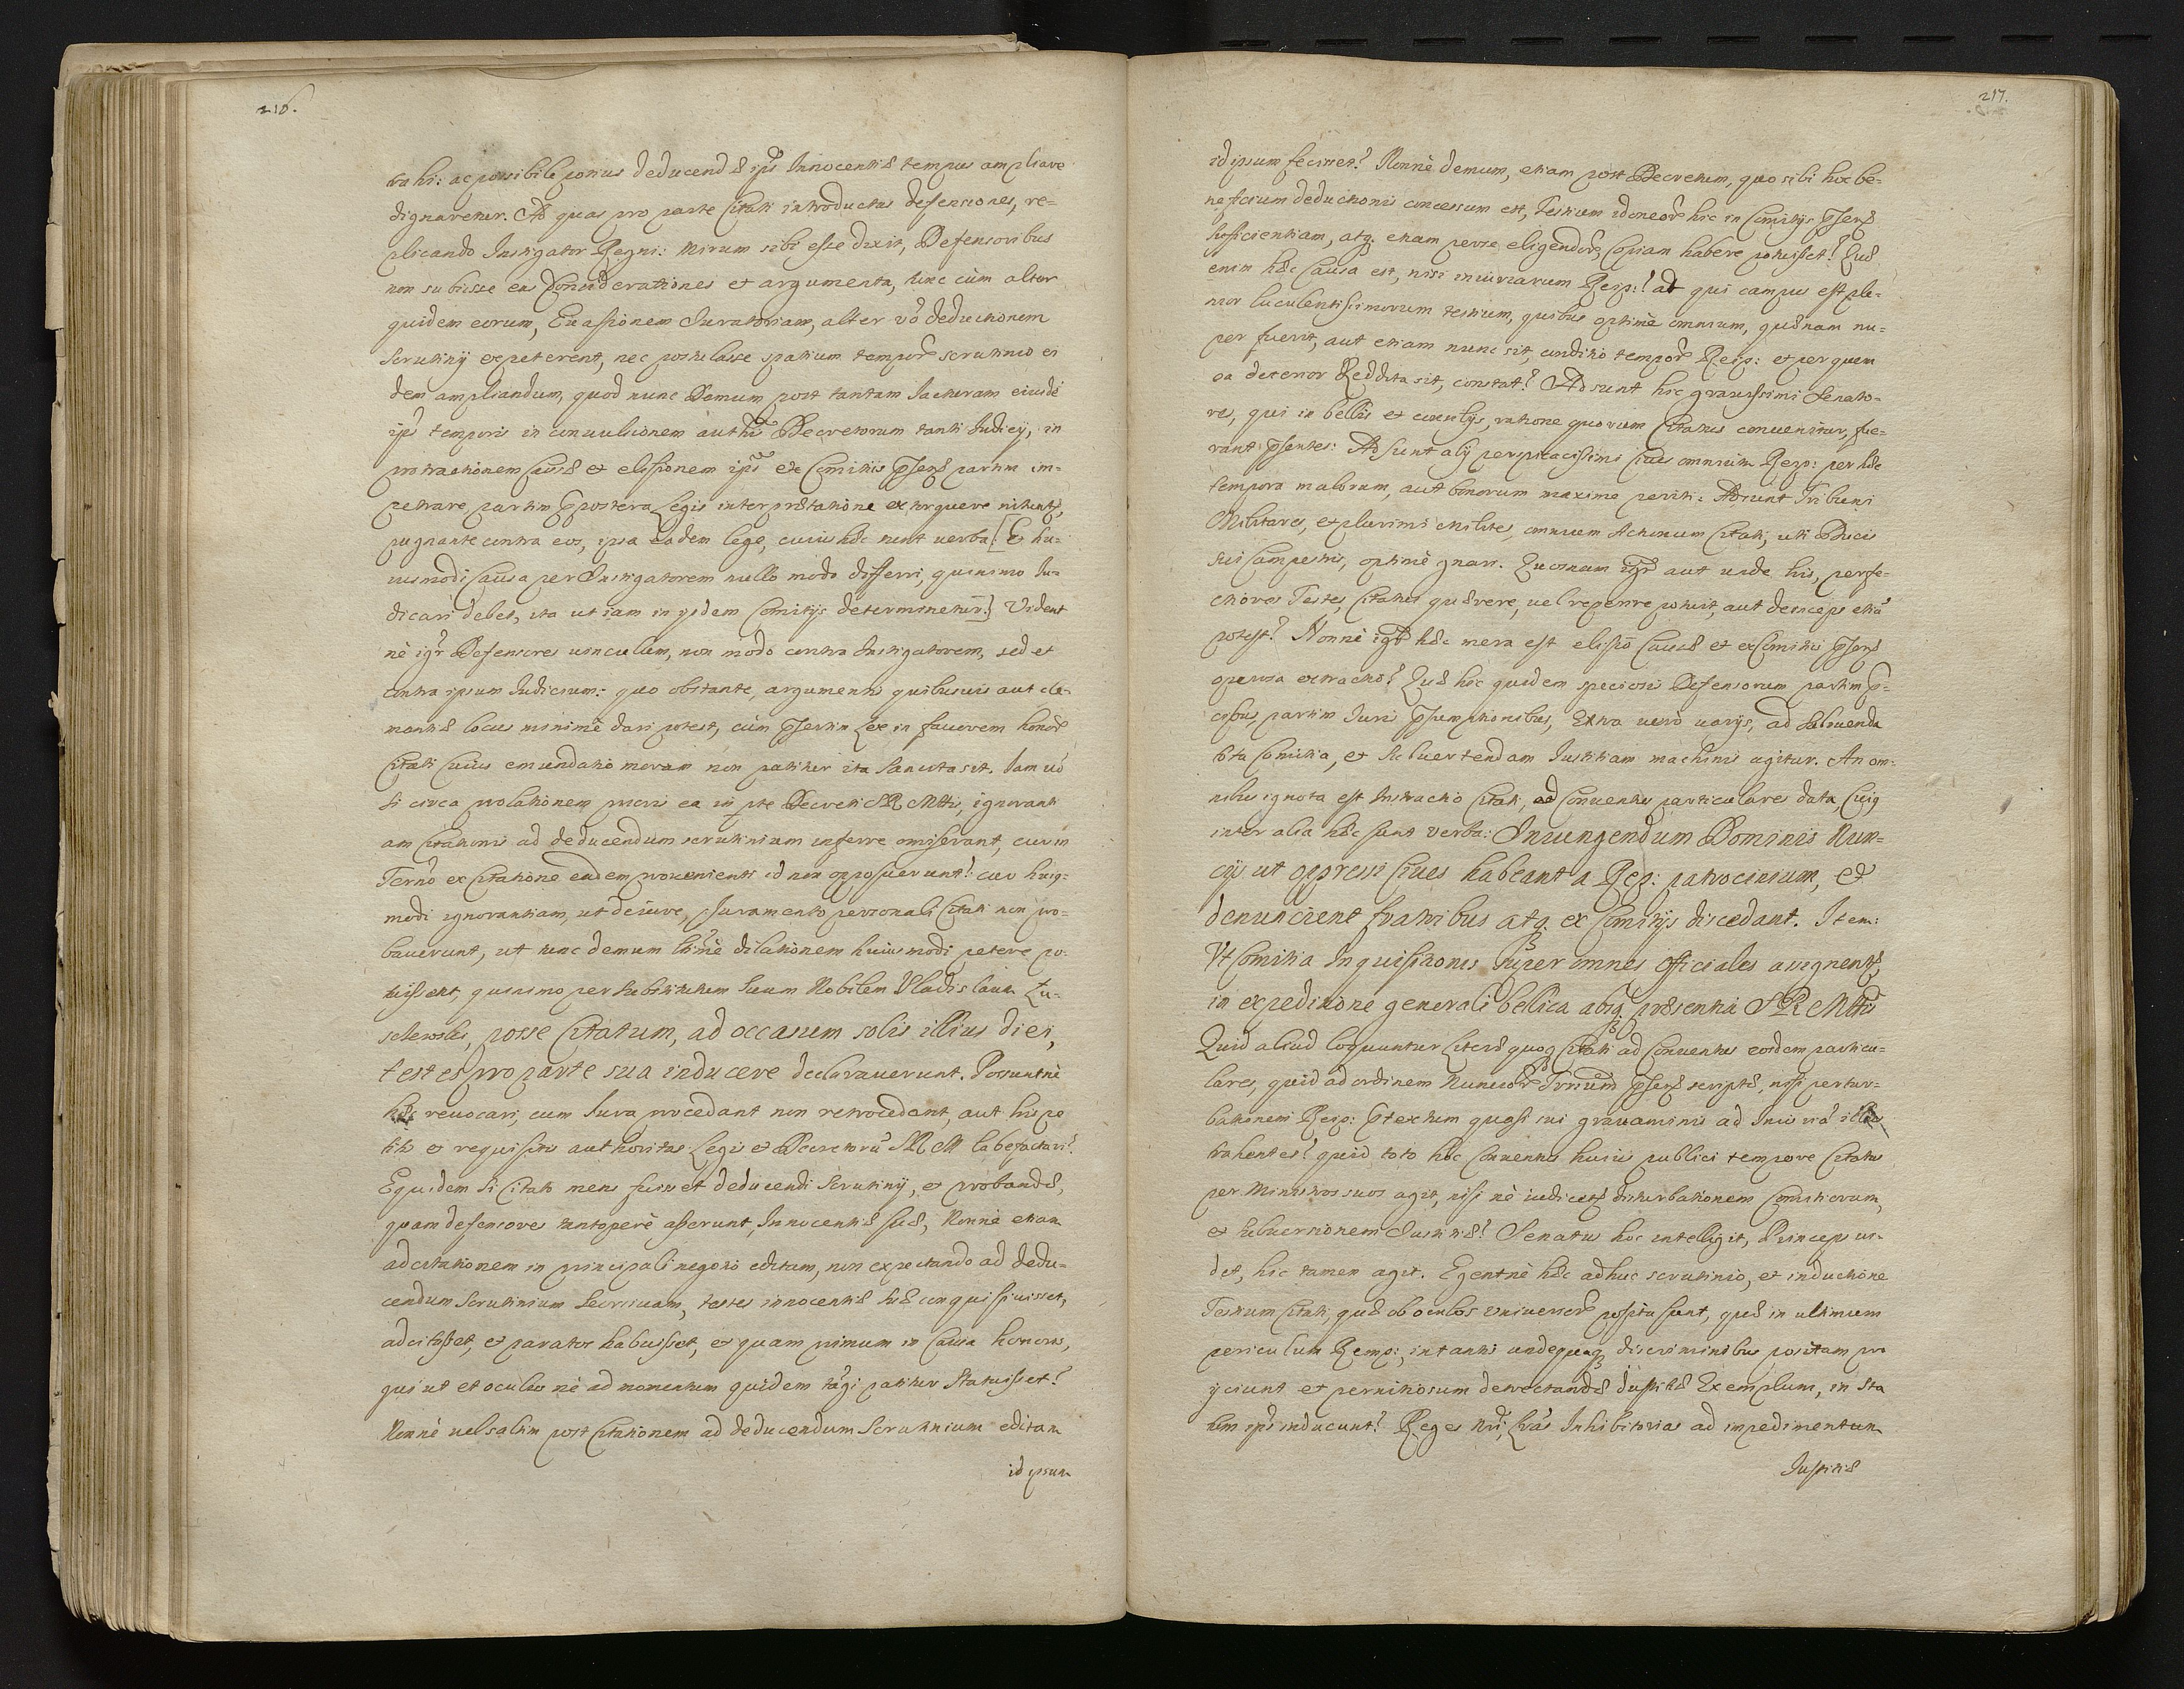 216.
trahi: ac possibile potius deducendæ ips Innocentiæ tempus ampliare
dignaretur. Ad quas pro parte Citati introductas defensiones, re-
plicando Instigator Regni: Mirum sibi esse dixit, Defensoribus
non subiisse eas Considerationes et argumenta, tunc cùm alter
quidem eorum, Euasionem Iuratoriam, alter vō deductionem
Scrutinij expeterent, nec postulasse spatium tempor scrutinio ei
dem ampliandum, quod nunc Demum post tantam Iacturam eiusdē
ips temporis in conuulsionem auth Decretorum tanti Iudicij, in
protractionem Causæ et elusionem ips ex Comitiis pser partim im-
petrare, partim ppostera Legis interprætatione extorquere nitunt,
pugnante contra eos, ipsa eadem lege, cuius hæc sunt uerba: [Et hu-
iusmodi Causa per Instigatorem nullo modo differri, quinimo Iu-
dicari debet, ita ut iam in ijsdem Comitijs determinetur.] Vident
nè igr Defensores uinculum, non modo contra Instigatorem, sed et
contra ipsum Iudicium: quo obstante, argumentis quibusuis aut cle-
mentiæ locus minimè dari potest, cùm psertim Lex in fauorem honor
Citati cuius emundatio moram non patitur ita Sancita sit. Iam uō
si circa prolationem prioris ea in pte Decreti SRMttis, ignoranti
am Citationis ad deducendum scrutinium inferre omiserant, cur in
Termo ex Citatione eadem prouenienti id non opposuerunt? cur huiq-
modi ignorantiam, ut de iure, Iuramento personali Citati non pro-
bauerunt, ut tunc demum ltimè dilationem huiusmodi petere po-
tuissent, quinimo per substitutum suum Nobilem Vladislaum Zu-
schlewski, posse Citatum, ad occasum solis illius diei,
testes pro parte sua inducere declarauerunt. Possuntnè
hæc reuocari, cum Iura procedant non retrocedant, aut his pe
titis et requisitis authoritas Legis et Decretorū SRM labefactari?
Equidem si Citato mens fuisset deducendi Scrutinij, et probandæ,
quam defensores tantoperè asserunt, Innocentiæ suæ, Nonnè etiam
ad citationem in principali negotio editam, non expectando ad dedu-
cendum Scrutinium Secutiuam, testes innocentiæ suæ conquisiuisset,
adcitasset, et paratos habuisset, et quam primum in Causa honoris,
qui ut et oculus nè ad momentum quidem tāgi patitur Statuisset?
Nonnè uel saltim post Citationem ad deducendum Scrutinium editam
id ipsum
217.
id ipsum fecisset? Nonnè demum, etiam post Decretum, quo sibi hoc be-
neficium deductionis concessum est, Testium idoneor hic in Comitijs pser
sufficientiam, atq. etiam per se eligendor Copiam habere potuisset? Quæ
enim hæc Causa est, nisi iniuriarum Reip:? at qui campus est ple-
nior luculentissimorum testium, quibus optimè omnium, quænam nu-
per fuerit, aut etiam nunc sit, conditio tempor Reip: et per quem
ea deterior Reddita sit, constat? Adsunt hic grauissimi Senato-
res, qui in bellis et euentijs, ratione quorum Citatus conuenitur, fue-
rant psentes: Adsunt alij perspicacissimi Ciues omnium Reip: per hæc
tempora malorum, aut bonorum maxime periti: Adsunt Tribuni
Militares, et plurimi Milites, omnium Actionum Citati, uti Ducis
sui Campestris, optimè gnari. Quosnam igr aut unde his, perfe-
ctiores Testes, Citatus quærere, uel reperire potuit, aut deinceps etiā
potest? Nonnè igr hæc mera est elusio Causæ et ex Comitiis pser
operosa extractio? Quæ hic quidem speciosis Defensorum partim p-
cibus, partim Iuris psumptionibus, Extra uerò uarijs, ad soluenda
ista Comitia, et subuertendam Iustitiam machinis agitur. An om-
nibus ignota est Instructio Citati, ad Conuentus particulares data, Cuiq
inter alia hæc sunt verba: Iniungendum Dominis Nun-
cijs ut oppressi Ciues habeant a Rep: patrocinium, et
denuncient fratribus atq. ex Comitijs discedant. Item:
Vt Comitia Inquisitionis super omnes Officiales assignent,
in expeditione generali bellica absq. præsentia SRMttis
Quid aliud loquuntur Literæ quoq Citati ad Conuentus eosdem particu-
lares, quid ad ordinem Nunciorū Trium pser scriptæ, nisi pertur-
bationem Reip: ptextum quasi sui grauaminis ad Iniuriā
trahentes? quid toto hoc Conuentus huius publici tempore Citatus
per Ministros suos agit, nisi nè iudicet disturbationem Comitiorum,
et subuersionem Iustitiæ? Senatus hoc intelligit, Princeps ui-
det, hic tamen agit. Egentnè hæc adhuc scrutinio, et inductione
Testium Citati, quæ ob oculos uniuersor posita sunt, quæ in ultimum
periculum Remp:, in tanti undequaq discriminibus positam pro
ijciunt et pernitiosum detrectandæ Iustitiæ Exemplum, in sta
tum ips inducunt? Reges Nri, Lras Inhibitorias ad impedimentum
Iustitiæ